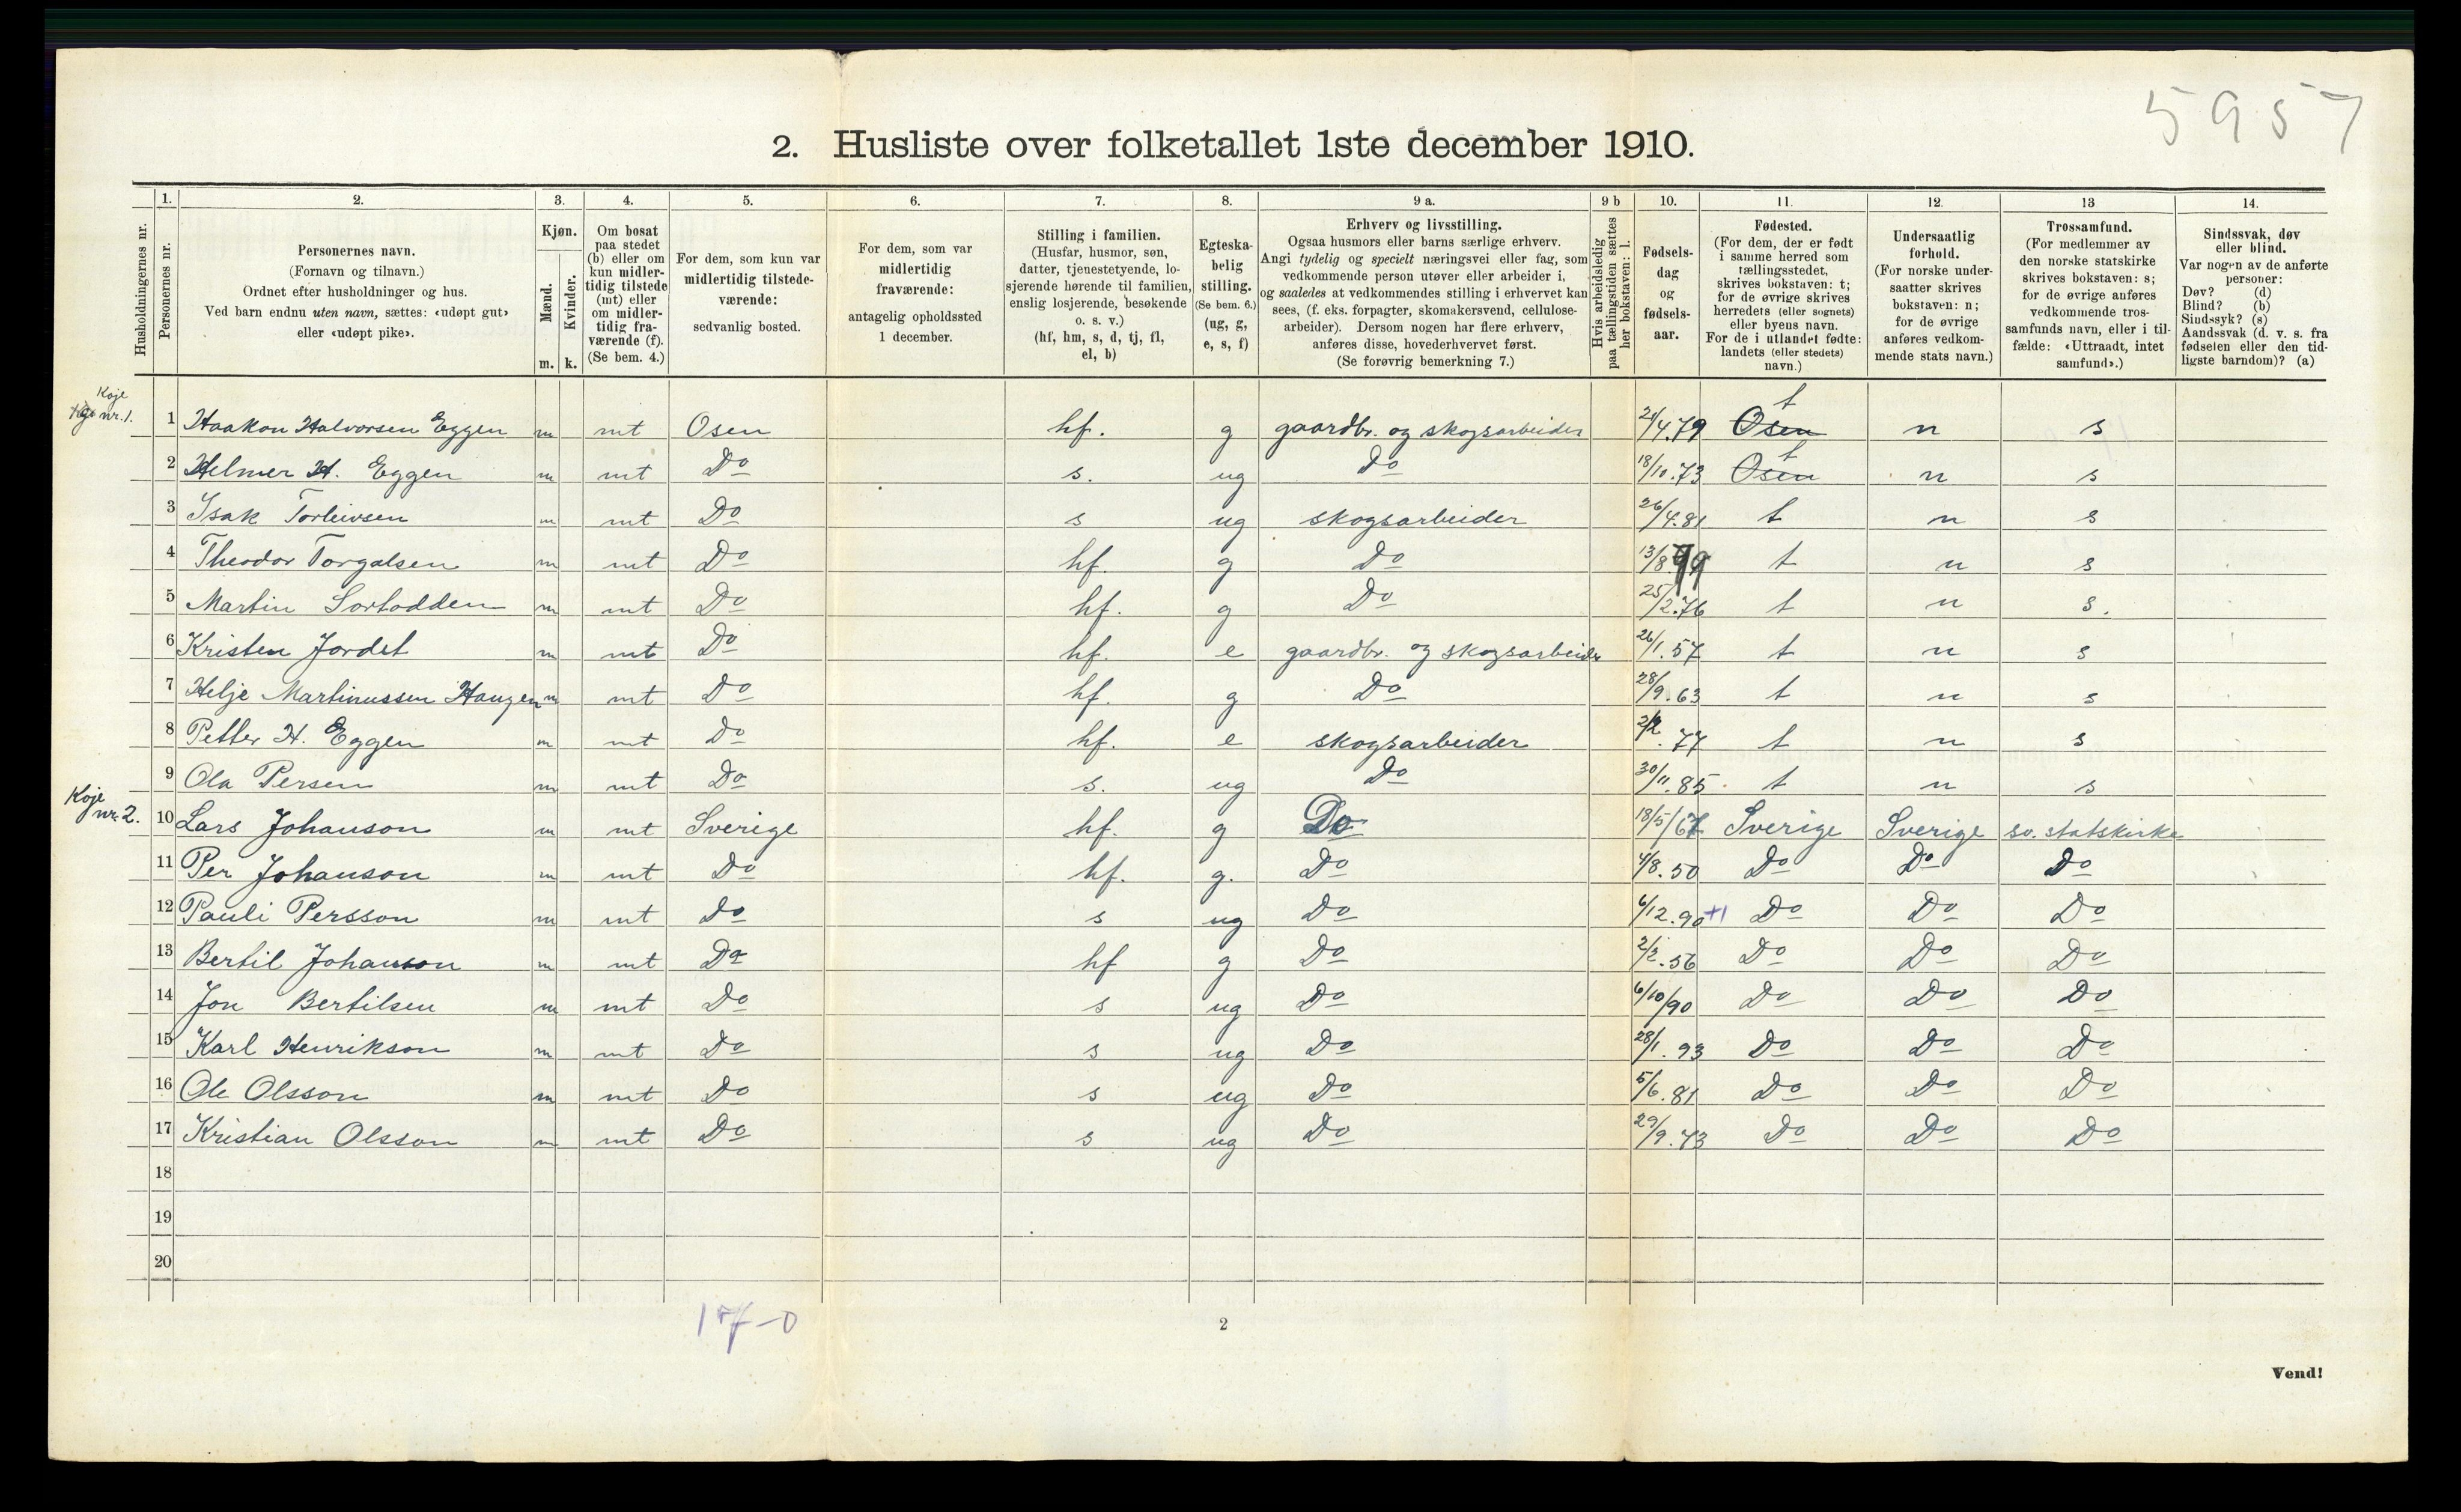 5957
2. Husliste over folketallet 1ste december 1910.
1. 2. 3. 4. 5. 6. 7. 8. 9 a. 9 b 10. 11. 12. 13 14.
Husholdningernes nr.
Personernes nr.
Personernes navn.
(Fornavn og tilnavn.)
Ordnet efter husholdninger og hus.
Ved barn endnu uten navn, sættes: «udøpt gut»
eller «udøpt pike».
Kjøn.
Mænd.
Kvinder.
m. k.
Om bosat
paa stedet
(b) eller om
kun midler-
tidig tilstede
(mt) eller
om midler-
tidig fra-
værende (f).
(Se bem. 4.)
For dem, som kun var
midlertidig tilstede-
værende:
sedvanlig bosted.
For dem, som var
midlertidig
fraværende:
antagelig opholdssted
1 december.
Stilling i familien.
(Husfar, husmor, søn,
datter, tjenestetyende, lo-
sjerende hørende til familien,
enslig losjerende, besøkende
o. s. v.)
(hf, hm, s, d, tj, fl,
el, b)
Egteska-
belig
stilling.
(Se bem. 6.)
(ug, g,
e, s, f)
Erhverv og livsstilling.
Ogsaa husmors eller barns særlige erhverv.
Angi tydelig og specielt næringsvei eller fag, som
vedkommende person utøver eller arbeider i,
og saaledes at vedkommendes stilling i erhvervet kan
sees, (f. eks. forpagter, skomakersvend, cellulose-
arbeider). Dersom nogen har flere erhverv,
anføres disse, hovederhvervet først.
(Se forøvrig bemerkning 7.)
Hvis arbeidsledig
paa tællingstiden sættes
her bokstaven: l.
Fødsels-
dag
og
fødsels-
aar.
Fødested.
(For dem, der er født
i samme herred som
tællingsstedet,
skrives bokstaven: t;
for de øvrige skrives
herredets (eller sognets)
eller byens navn.
For de i utlandet fødte:
landets (eller stedets)
navn.)
Undersaatlig
forhold.
(For norske under-
saatter skrives
bokstaven: n;
for de øvrige
anføres vedkom-
mende stats navn.)
Trossamfund.
(For medlemmer av
den norske statskirke
skrives bokstaven: s;
for de øvrige anføres
vedkommende tros-
samfunds navn, eller i til-
fælde: «Uttraadt, intet
samfund».)
Sindssvak, døv
eller blind.
Var nogen av de anførte
personer:
Døv? (d)
Blind? (b)
Sindssyk? (s)
Aandssvak (d. v. s. fra
fødselen eller den tid-
ligste barndom)? (a)
Koje
nr. 1.
1 Haakon Halvorsen Eggen m mt Osen hf. g gaardbr. og skogsarbeider 21/4.79 Osen t n s
2 Helmer H. Eggen m mt Do s. ug Do 18/10.73 Osen t n s
3 Isak Torleivsen m mt Do s ug skogsarbeider 26/4.81 t n s
4 Theodor Torgalsen m mt Do hf. g Do 13/8 79 t n s
5 Martin Sorlodden m mt Do hf. g Do 25/2.76 t n s.
6 Kristen Jordet m mt Do hf. e gaardbr. og skogsarbeider 26/1.57 t n s
7 Helje Martinussen Haugen m mt Do hf. g Do 28/9.63 t n s
8 Petter H. Eggen m mt Do hf. e skogsarbeider 2/2.77 t n s
9 Ola Persen m mt Do s. ug Do 30/11.85 t n s
Koje
nr. 2.
10 Lars Johanson m mt Sverige hf. g Do 18/5/67 Sverige Sverige sv. statskirke
11 Per Johanson m mt Do hf. g. Do 4/8.50 Do Do Do
12 Pauli Persson m mt Do s ug Do 6/12.90 +1 Do Do Do
13 Bertil Johanson m mt Do hf g Do 2/2.56 Do Do Do
14 Jon Bertilsen m mt Do s ug Do 6/10/90 Do Do Do
15 Karl Henrikson m mt Do s ug Do 28/1.93 Do Do Do
16 Ole Olsson m mt Do s ug Do 5/6.81 Do Do Do
17 Kristian Olsson m mt Do s ug Do 29/9.73 Do Do Do
18
19
20
17-0
2
Vend!